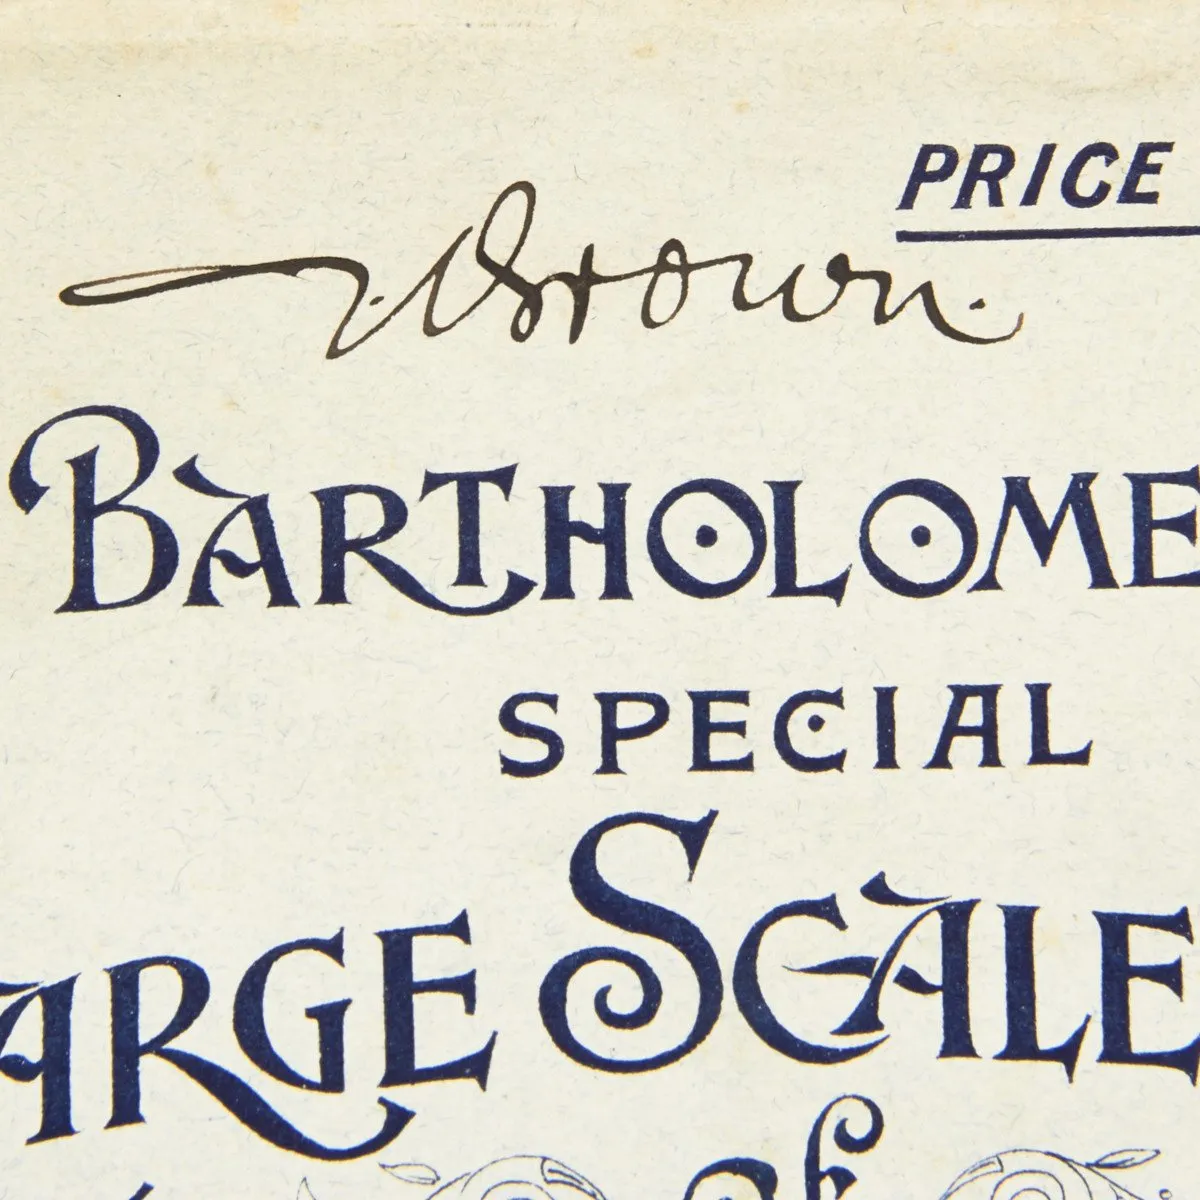 PRICE
Brown.
BARTHOLOME
SPECIAL
ARGE SCALE
of